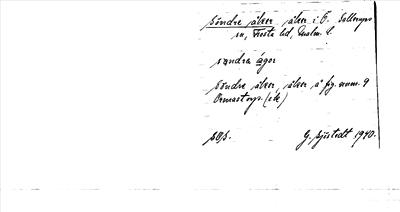 Söndre åker åker i Ö. Sallerups
sn, Frosta hd, Malm. l.
søndra ågər
Söndre åker, åker å fig. num. 9
Ormastorp. (ek)
G. Sjöstedt 1940.